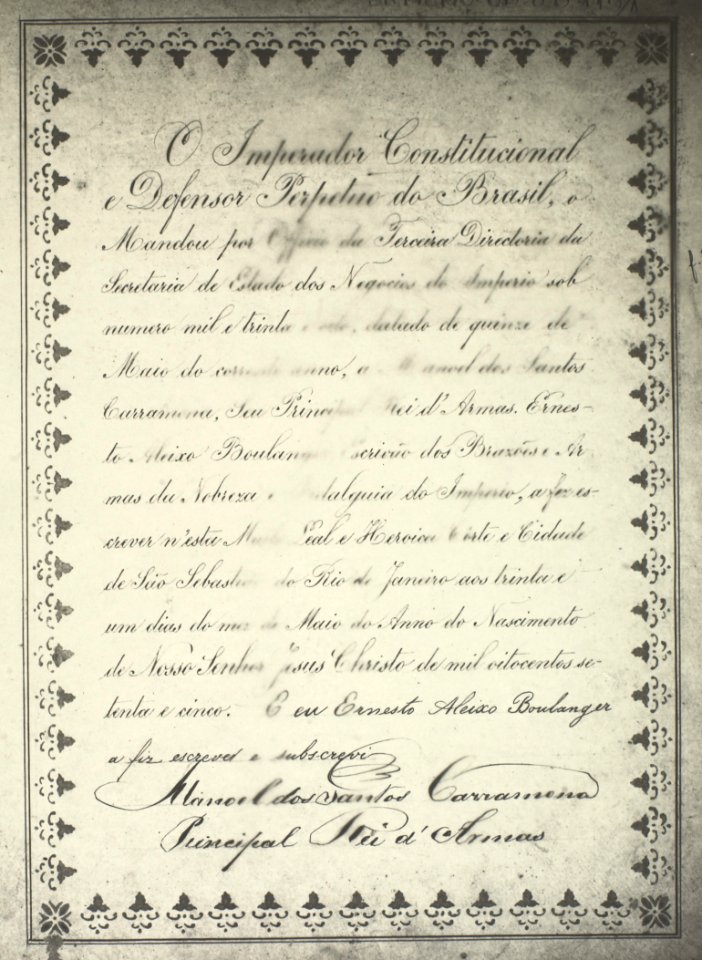 O Imperador Constitucional
e Defensor Perpetuo do Brasil, o
Mandou por Officio da Terceira Directoria da
Secretaria de Estado dos Negocios do Imperio sob
numero mil e trinta e oito, datado de quinze de
Maio do corrente anno, a Manoel dos Santos
Carramona, Seu Principal Rei d'Armas. Ernes-
to Aleixo Boulanger Escrivão dos Brazões e Ar-
mas da Nobreza e Fidalguia do Imperio, a fez es-
crever n'esta Muito Leal e Heroica Côrte e Cidade
de São Sebastião do Rio de Janeiro aos trinta e
um dias do mez de Maio do Anno do Nascimento
de Nosso Senhor Jesus Christo de mil oitocentos se-
tenta e cinco. E eu Ernesto Aleixo Boulanger
a fiz escrever e subscrevi
Manoel dos Santos Carramona
Principal Rei d'Armas